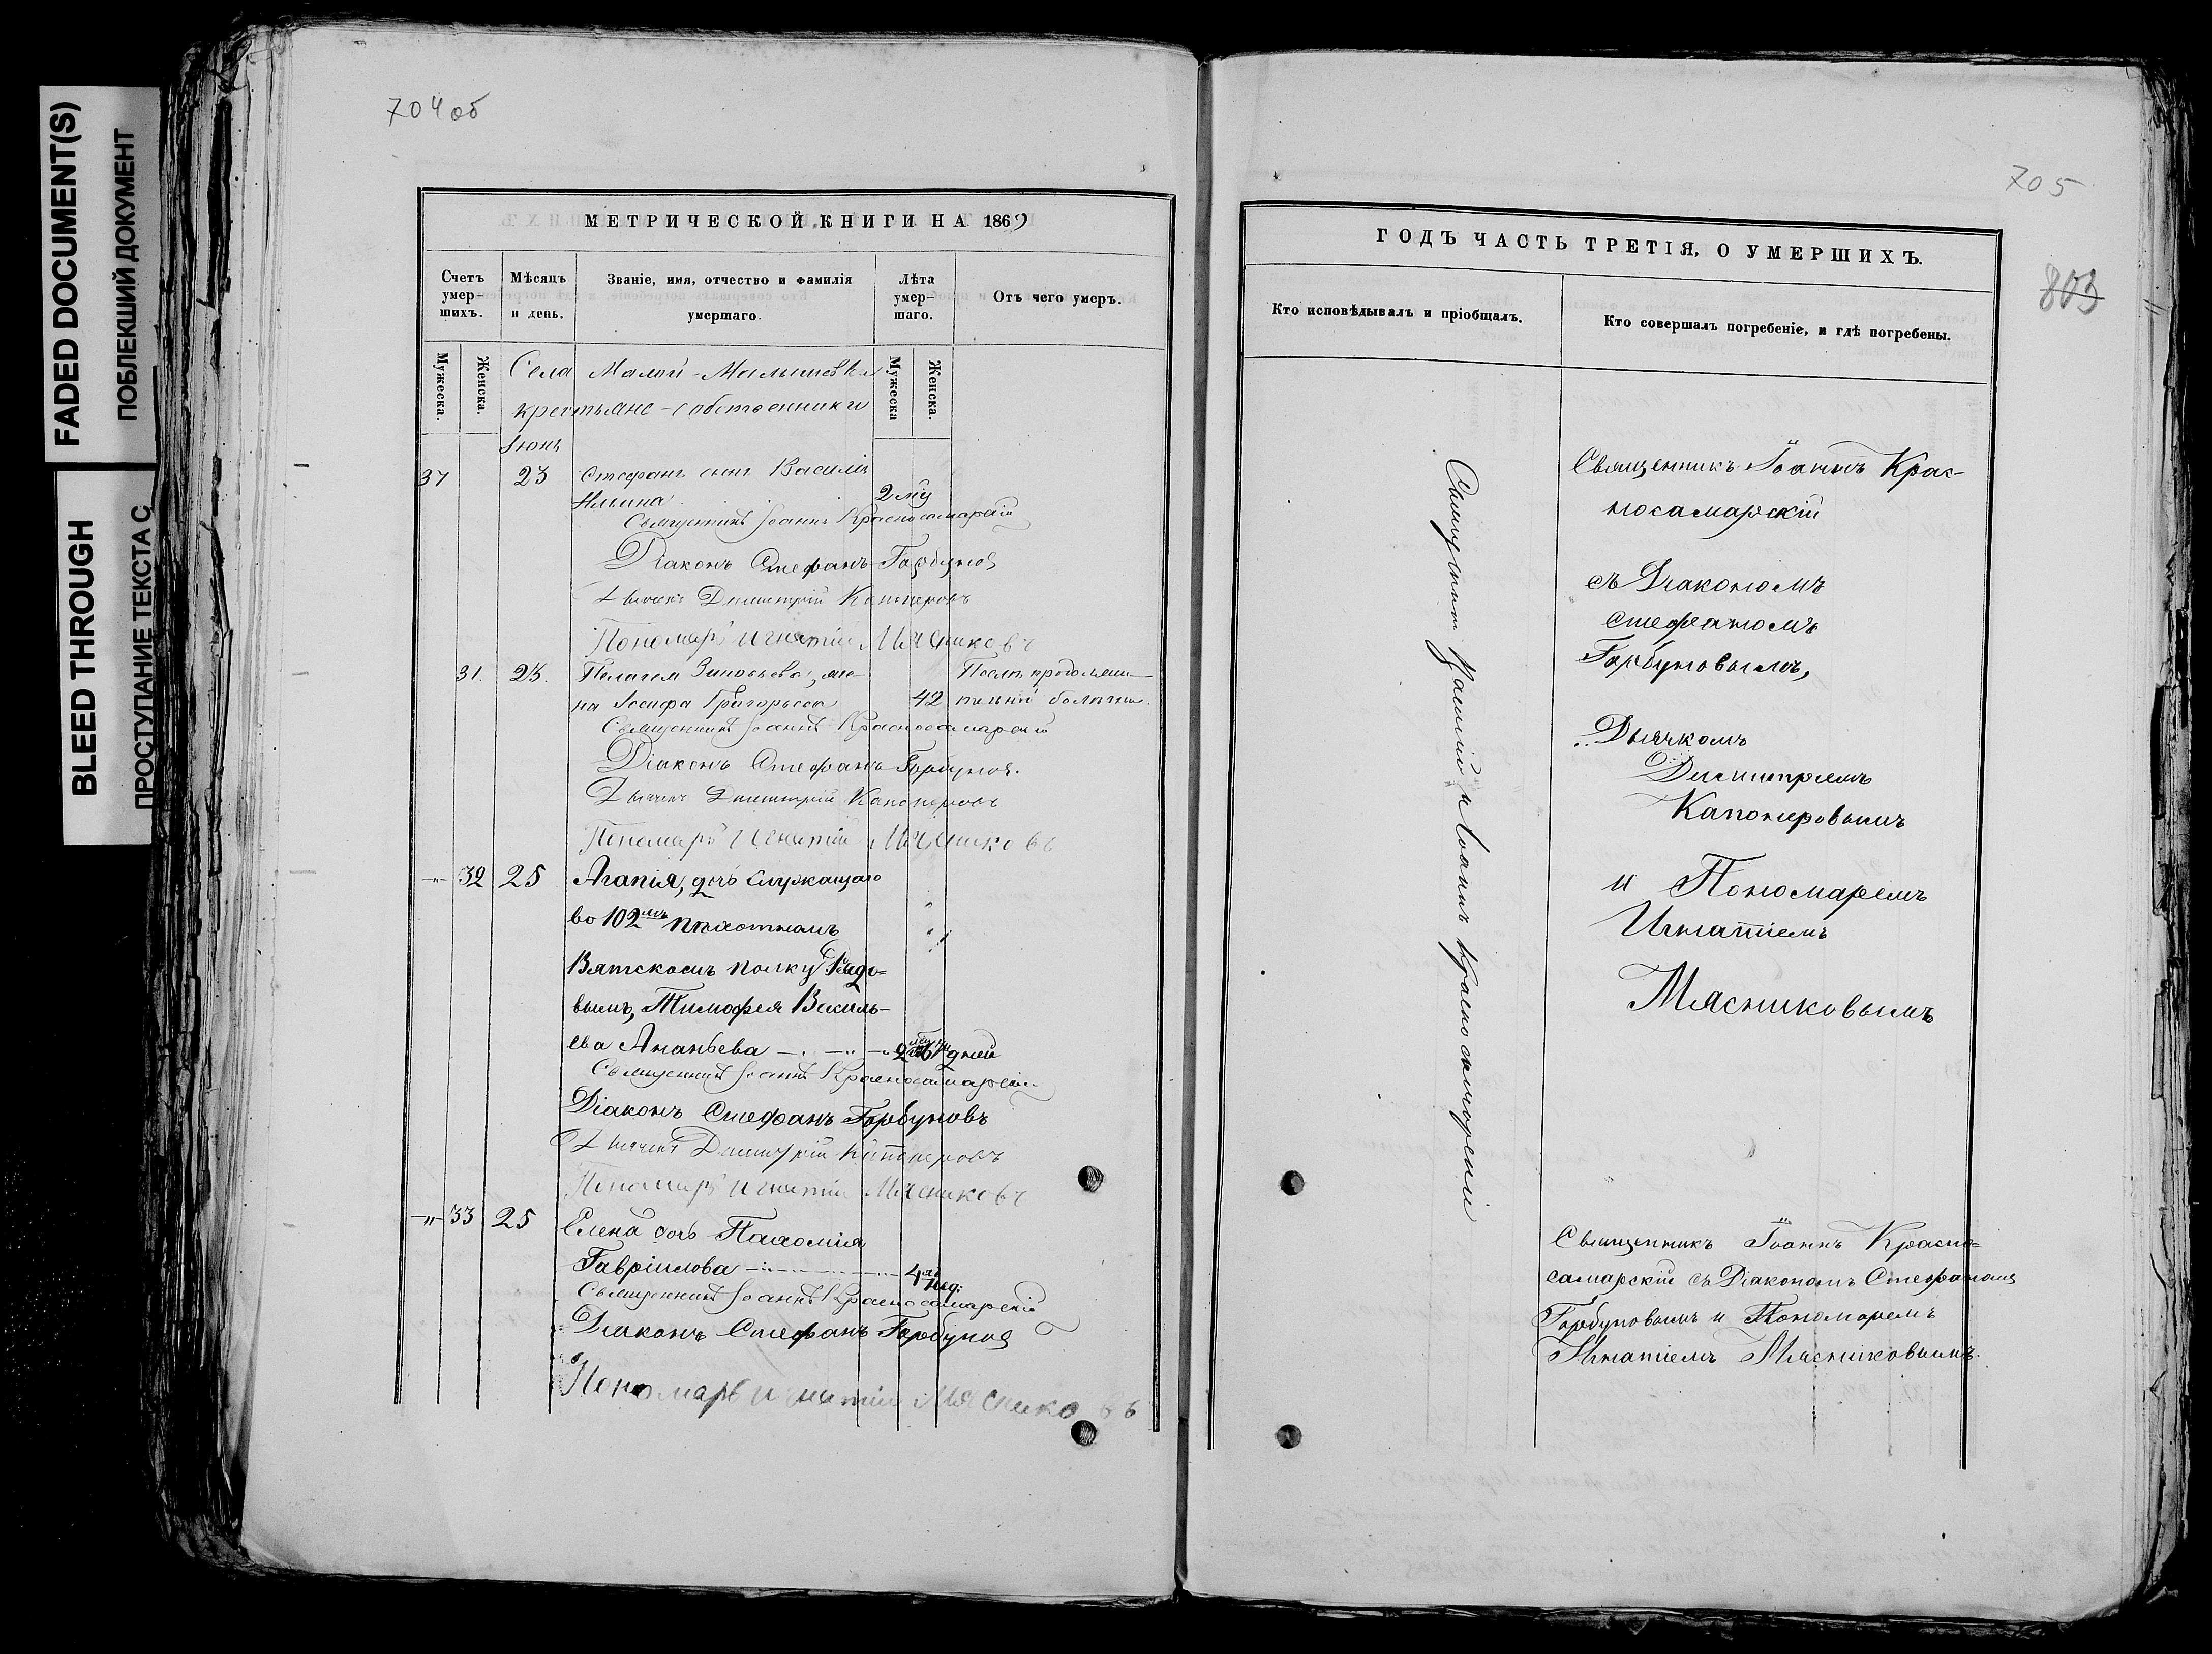 FADED DOCUMENT(S)
ПОБЛЕКШИЙ ДОКУМЕНТ
BLEED THROUGH
ПРОСТУПАНИЕ ТЕКСТА С
704об
МЕТРИЧЕСКОЙ КНИГИ НА 1869
Счетъ умер-шихъ.
Мѣсяцъ и день.
Званіе, имя, отчество и фамилія умершаго.
Лѣта умер-шаго.
Отъ чего умеръ.
Мужеска.
Женска.
Мужеска
Женска.
Села Малой-Малышевки
крестьяне-собственники
Іюнь
37 23 Стефанъ сынъ Василія
Ильина 2 му
Священникъ Іоаннъ Красносамарскій
Діаконъ Стефанъ Горбуновъ
Дьячекъ Димитрій Капонеровъ
Пономарь Игнатій Мясниковъ
31. 23. Пелагея Зиновьева, же-
на Іосифа Григорьева 42
Послѣ продолжи-
тельной болѣзни.
Священникъ Іоаннъ Красносамарскій
Діаконъ Стефанъ Горбуновъ.
Дьячекъ Димитрій Капонеровъ
Пономарь Игнатій Мясниковъ
-"- 32 25 Агапія, дчь служащаго
во 102мъ пѣхотномъ
Вятскомъ полку Рядо-
вымъ, Тимофея Василь-
ева Ананьева дней
Священникъ Іоаннъ Красносамарскій
Діаконъ Стефанъ Горбуновъ
Дьячекъ Димитрій Капонеровъ
Пономарь Игнатій Мясниковъ
-"- 33 25 Елена дочь Пахомія
Гавріилова 4 нед:
Священникъ Іоаннъ Красносамарскій
Діаконъ Стефанъ Горбуновъ
Пономарь Игнатій Мясниковъ
705
803
ГОДЪ ЧАСТЬ ТРЕТІЯ, О УМЕРШИХЪ.
Кто исповѣдывалъ и пріобщалъ.
Кто совершалъ погребеніе, и гдѣ погребены.
Іоаннъ Красносамарскій
Священникъ Іоаннъ Крас-
носамарскій
съ Діакономъ
Стефаномъ
Горбуновымъ,
Дьячкомъ
Димитріемъ
Капонеровымъ
и Пономаремъ
Игнатіемъ
Мясниковымъ
Священникъ Іоаннъ Красно=
самарскій съ Діакономъ Стефаномъ
Горбуновымъ и Пономаремъ
Игнатіемъ Мясниковымъ.